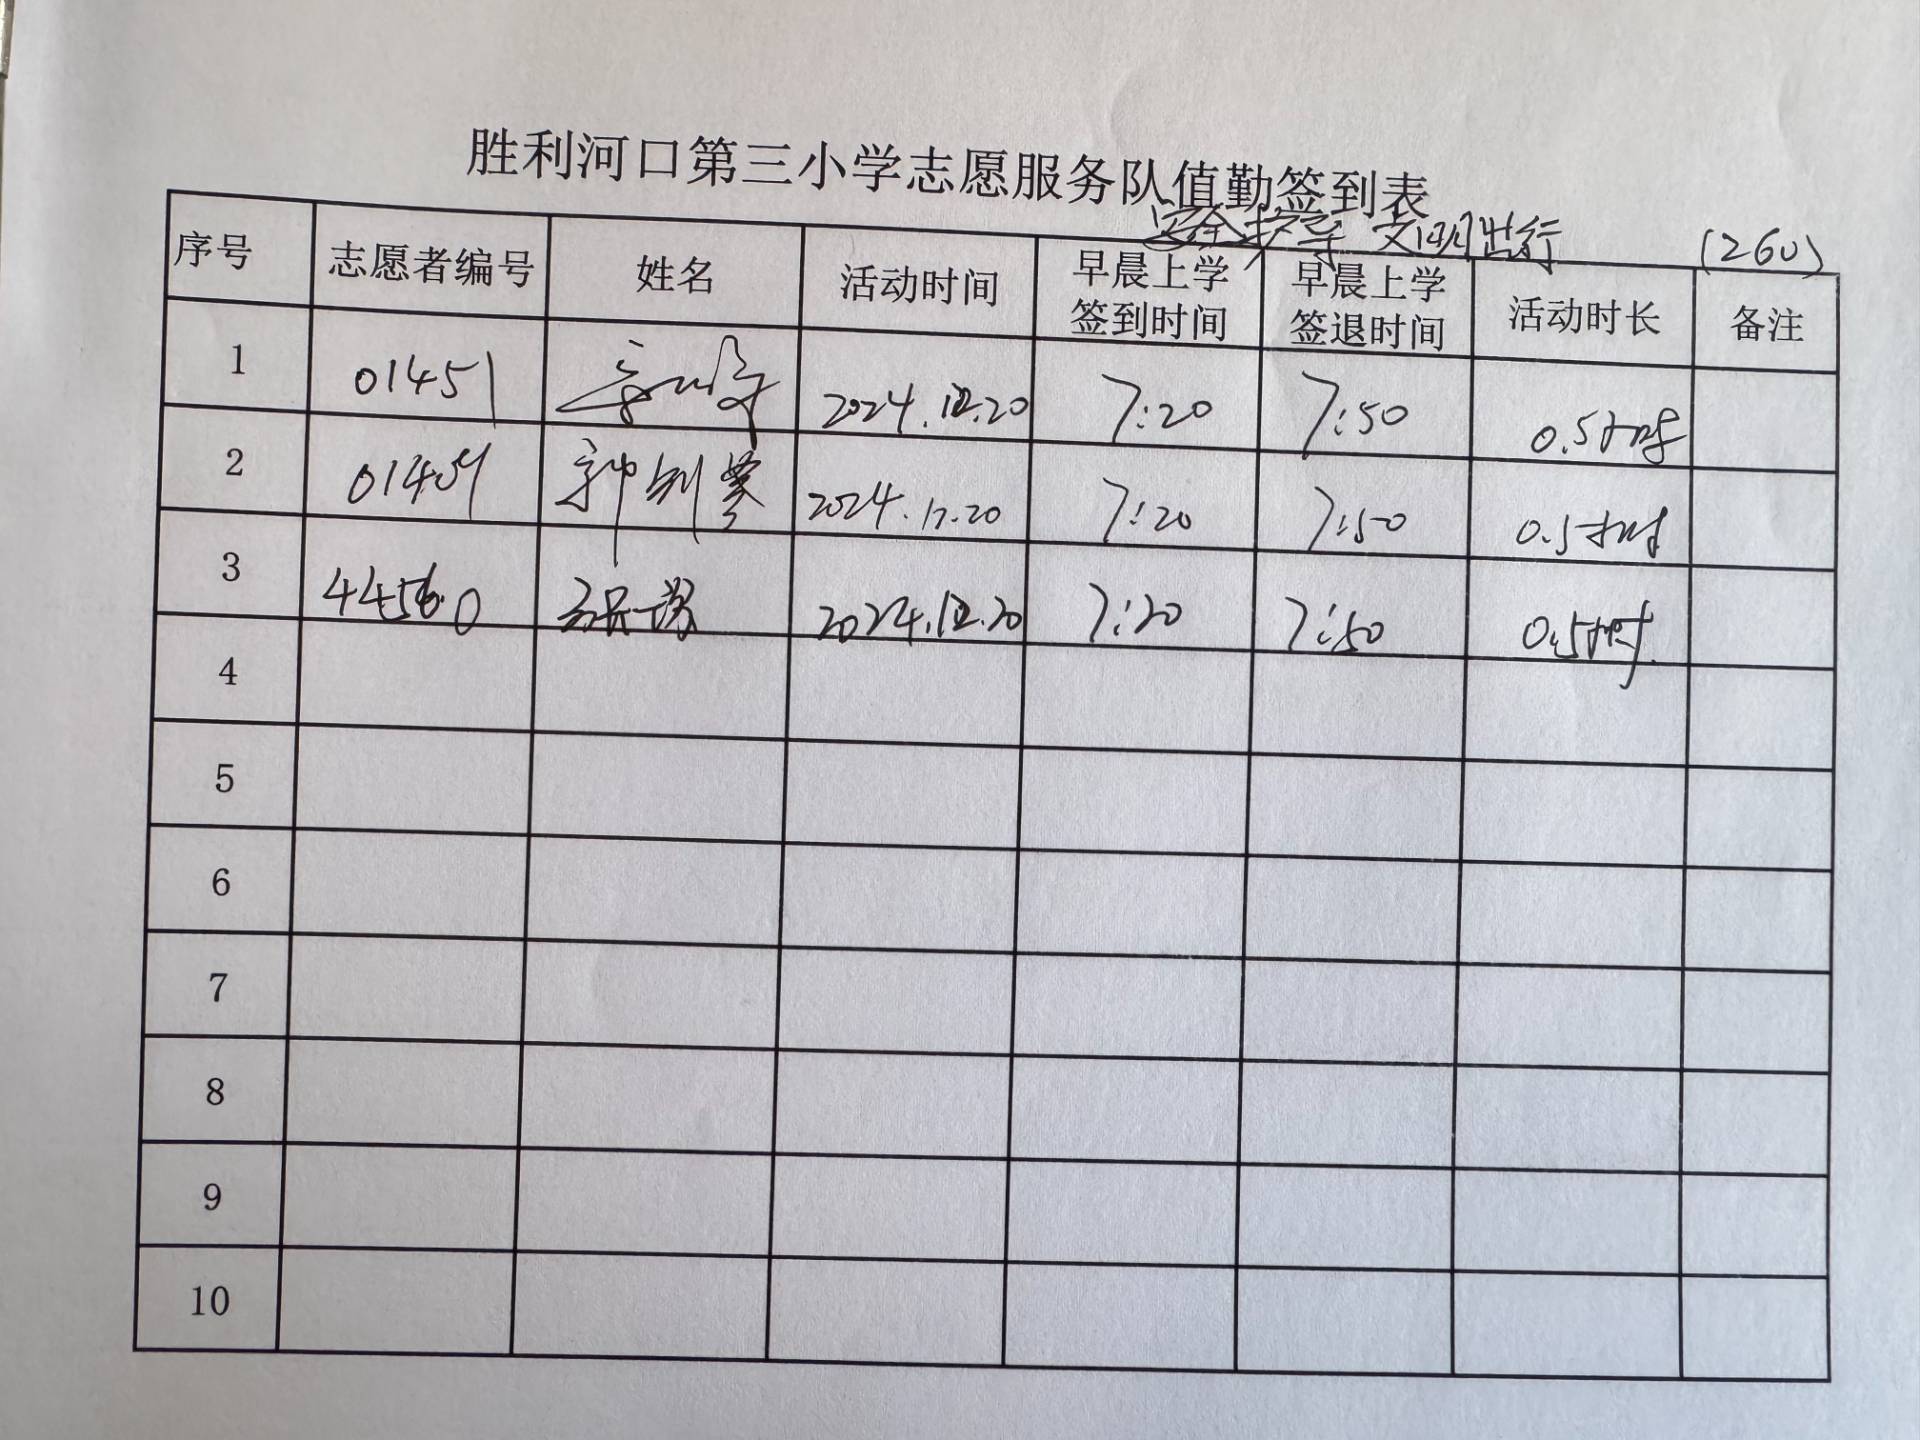 胜利河口第三小学志愿服务队值勤签到表
安全护导 文明出行 (260)
序号 志愿者编号 姓名 活动时间 早晨上学签到时间 早晨上学签退时间 活动时长 备注
1 01451 2024.12.20 7:20 7:50 0.5小时
2 2024.12.20 7:20 7:50 0.5小时
3 2024.12.20 7:20 7:50 0.5小时
4
5
6
7
8
9
10